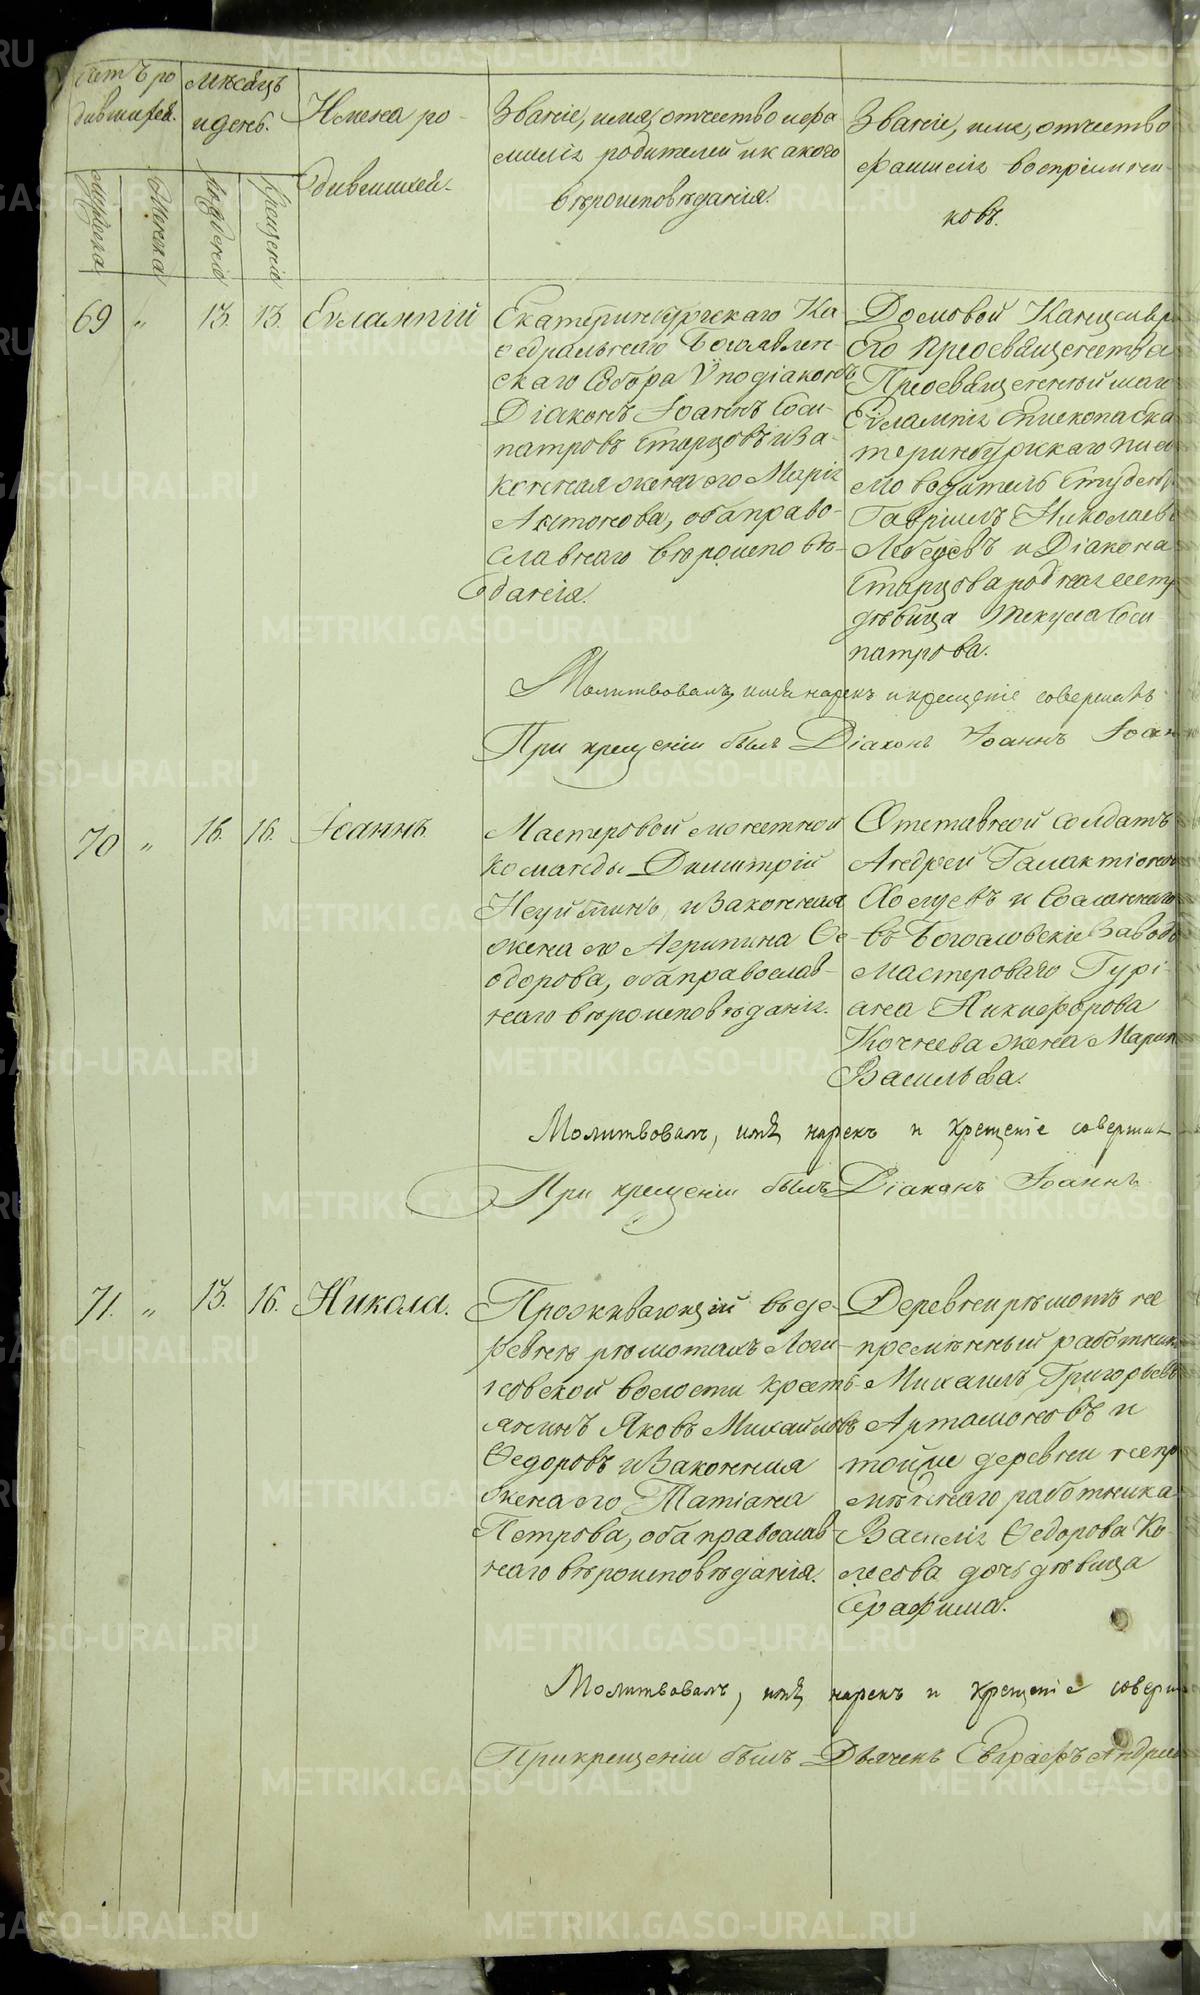 Счетъ ро
дившихся.
Мѣсяцъ
и день.
Имена ро-
дившихся.
Званіе, имя, отчество и фа
милія родителей и какого
вѣроисповѣданія.
Званіе, имя, отчество
и фамилія воспріемни-
ковъ.
Мужеска
Женска
Рожденія
Крещенія
69 „ 13. 13. Евлампій
Екатеринбургскаго Ка
ѳедральнаго Богоявлен-
скаго Собора Ѵподіаконъ
Діаконъ Іоаннъ Соси-
патровъ Старцовъ и за-
конная жена его Марія
Антонова, оба право-
славнаго вѣроисповѣ-
данія.
Домовой Канцеляр
Его Преосвященства
Преосвященнѣйшаго
Евлампія Епископа Ека
теринбургскаго пись
моводитель Студентъ
Гавріилъ Николаевъ
Лебедевъ и Діакона
Старцова родная сест
дѣвица Ѳекула Соси
патрова.
Молитвовалъ, имя нарекъ и крещеніе совершалъ
При крещеніи былъ Діаконъ Іоаннъ Іоан
70 „ 16. 16. Іоаннъ
Мастеровой монетной
команды Димитрій
Неуйминъ, и законная
жена его Агрипина Ѳе-
одорова, оба православ-
наго вѣроисповѣданія.
Отставной солдатъ
Андрей Галактіонов
и Сосланнаго
въ Богословскіе заводъ
мастероваго Гурі-
ана Никифорова
Кочнева жена Марин
Васильева.
Молитвовалъ, имя нарекъ и крещеніе совершал
При крещеніи былъ Діаконъ Іоаннъ
71. „ 13. 16. Никола.
Проживающій въ де-
ревнѣ рѣшотахъ Логи-
новской волости кресть-
янинъ Яковъ Михайловъ
Ѳедоровъ и законная
жена его Татіана
Петрова, оба православ-
наго вѣроисповѣданія.
Деревни рѣшотъ не
премѣнный работник
Михаилъ Григорьевъ
Артамоновъ и
тойже деревни непр
емѣннаго работника
Василія Ѳедорова Ко-
леснова дочь дѣвица
Серафима.
Молитвовалъ, имя нарекъ и крещеніе соверш
При крещеніи былъ Дьячекъ Евграфъ Андрее